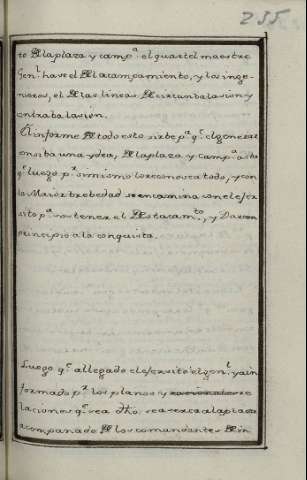 255
to dela plaza y camp.ª el quartel maestre
jen.l hase el del acampamiento, y los inge-
nieros, el delas lineas de circunbalasion y
contrabalasion.
El informe de todo esto sirbe p.ª q.e el general
consiba una ydea, dela plaza y camp.ª asta
q.e luego p.r si mismo lo reconosca todo, y con
la Maior brebedad se encamina con el exer
sito p.ª sostener el destacam.to, y Dar un
prinsipio a la conquista.
Luego q.e a llegado el exersito el gen.l ya in
formado p.r los planos y re
laciones q.e sea dho, se aserca a la plasa
acompañado de los comandantes de in